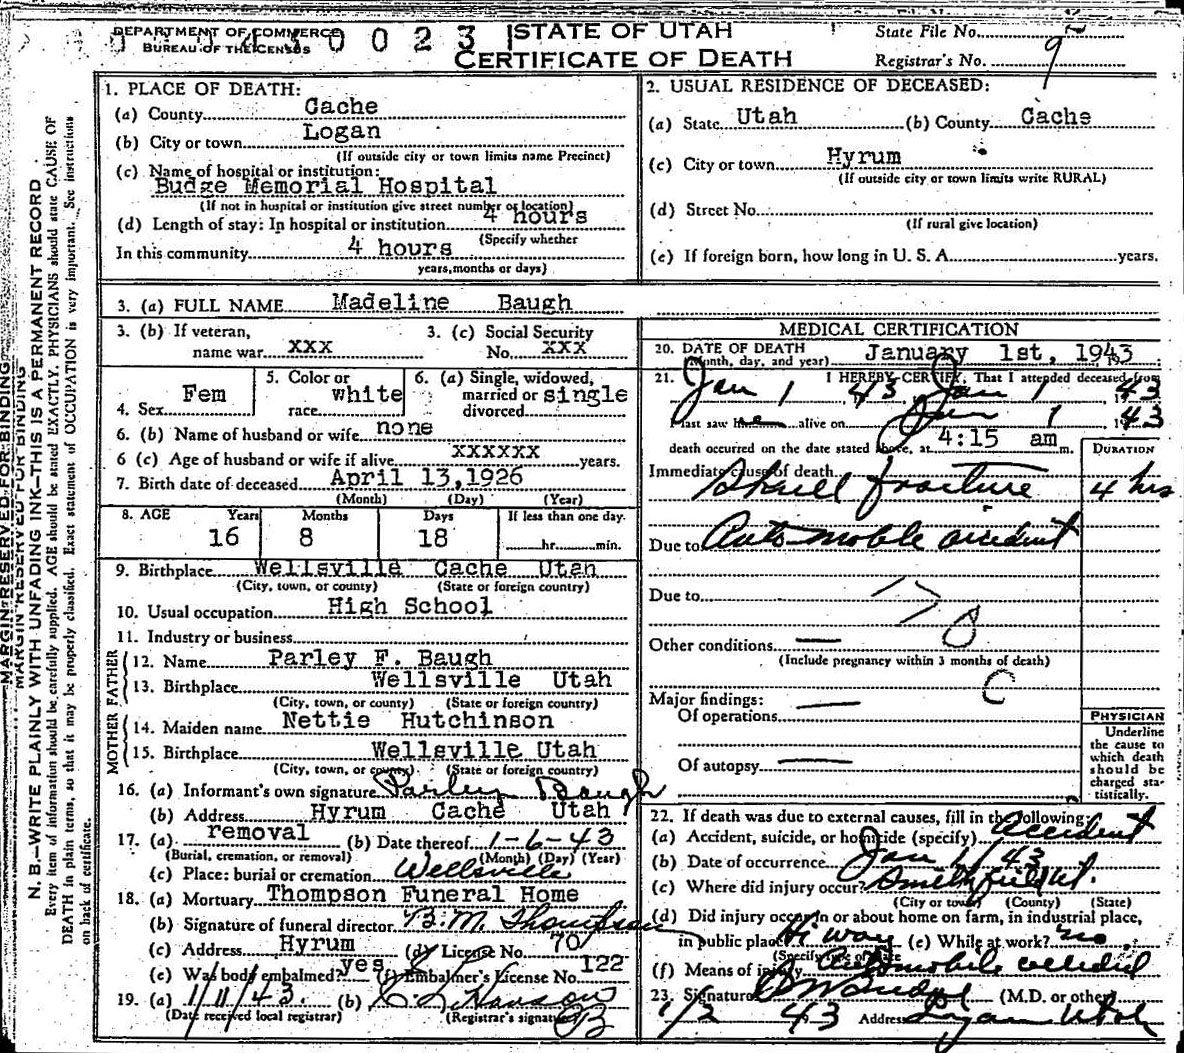 DEPARTMENT OF COMMERCE
BUREAU OF THE CENSUS
0 0 2 3
STATE OF UTAH
CERTIFICATE OF DEATH
State File No.
Registrar's No. 9
MARGIN RESERVED FOR BINDING
MARGIN RESERVED FOR BINDING
N. B.—WRITE PLAINLY WITH UNFADING INK—THIS IS A PERMANENT RECORD
Every item of information should be carefully supplied. AGE should be stated EXACTLY. PHYSICIANS should state CAUSE OF
DEATH in plain terms, so that it may be properly classified. Exact statement of OCCUPATION is very important. See instructions
on back of certificate.
1. PLACE OF DEATH:
(a) County Cache
(b) City or town Logan
(If outside city or town limits name Precinct)
(c) Name of hospital or institution:
Budge Memorial Hospital
(If not in hospital or institution give street number or location)
(d) Length of stay: In hospital or institution 4 hours
(Specify whether
In this community 4 hours
years, months or days)
2. USUAL RESIDENCE OF DECEASED:
(a) State Utah (b) County Cache
(c) City or town Hyrum
(If outside city or town limits write RURAL)
(d) Street No.
(If rural give location)
(e) If foreign born, how long in U. S. A. years.
3. (a) FULL NAME Madeline Baugh
3. (b) If veteran,
name war xxx
3. (c) Social Security
No. xxx
4. Sex Fem
5. Color or
race white
6. (a) Single, widowed,
married or single
divorced
6. (b) Name of husband or wife none
6 (c) Age of husband or wife if alive xxxxxx years.
7. Birth date of deceased April 13,1926
(Month) (Day) (Year)
8. AGE Years Months Days If less than one day.
16 8 18 hr. min.
9. Birthplace Wellsville Cache Utah
(City, town, or county) (State or foreign country)
10. Usual occupation High School
11. Industry or business
FATHER
12. Name Parley F. Baugh
13. Birthplace Wellsville Utah
(City, town, or county) (State or foreign country)
MOTHER
14. Maiden name Nettie Hutchinson
15. Birthplace Wellsville Utah
(City, town, or county) (State or foreign country)
16. (a) Informant's own signature Parley Baugh
(b) Address Hyrum Cache Utah
17. (a) removal (b) Date thereof 1-6-43
(Burial, cremation, or removal) (Month) (Day) (Year)
(c) Place: burial or cremation Wellsville
18. (a) Mortuary Thompson Funeral Home
(b) Signature of funeral director B. M. Thompson
(c) Address Hyrum (d) License No. 70
(e) Was body embalmed? yes (f) Embalmer's License No. 122
19. (a) 1/11/43. (b) Hanson
(Date received local registrar) (Registrar's signature)
MEDICAL CERTIFICATION
20. DATE OF DEATH
(Month, day, and year) January 1st, 1943
21. I HEREBY CERTIFY, That I attended deceased from
Jan 1 43 Jan 1 1943
I last saw h alive on Jan 1 1943
death occurred on the date stated above, at 4:15 am m.
DURATION
Immediate cause of death
Skull fracture 4 hrs
Due to Automobile accident
Due to
Other conditions
(Include pregnancy within 3 months of death)
Major findings:
Of operations
Of autopsy
PHYSICIAN
Underline
the cause to
which death
should be
charged sta-
tistically.
22. If death was due to external causes, fill in the following:
(a) Accident, suicide, or homicide (specify) Accident
(b) Date of occurrence Jan 1/43
(c) Where did injury occur? Smithfield Ut.
(City or town) (County) (State)
(d) Did injury occur in or about home on farm, in industrial place,
in public place? Hi way (e) While at work? no
(Specify type of place)
(f) Means of injury Automobile accident
23. Signature (M.D. or other)
1/2 43 Address Logan Utah